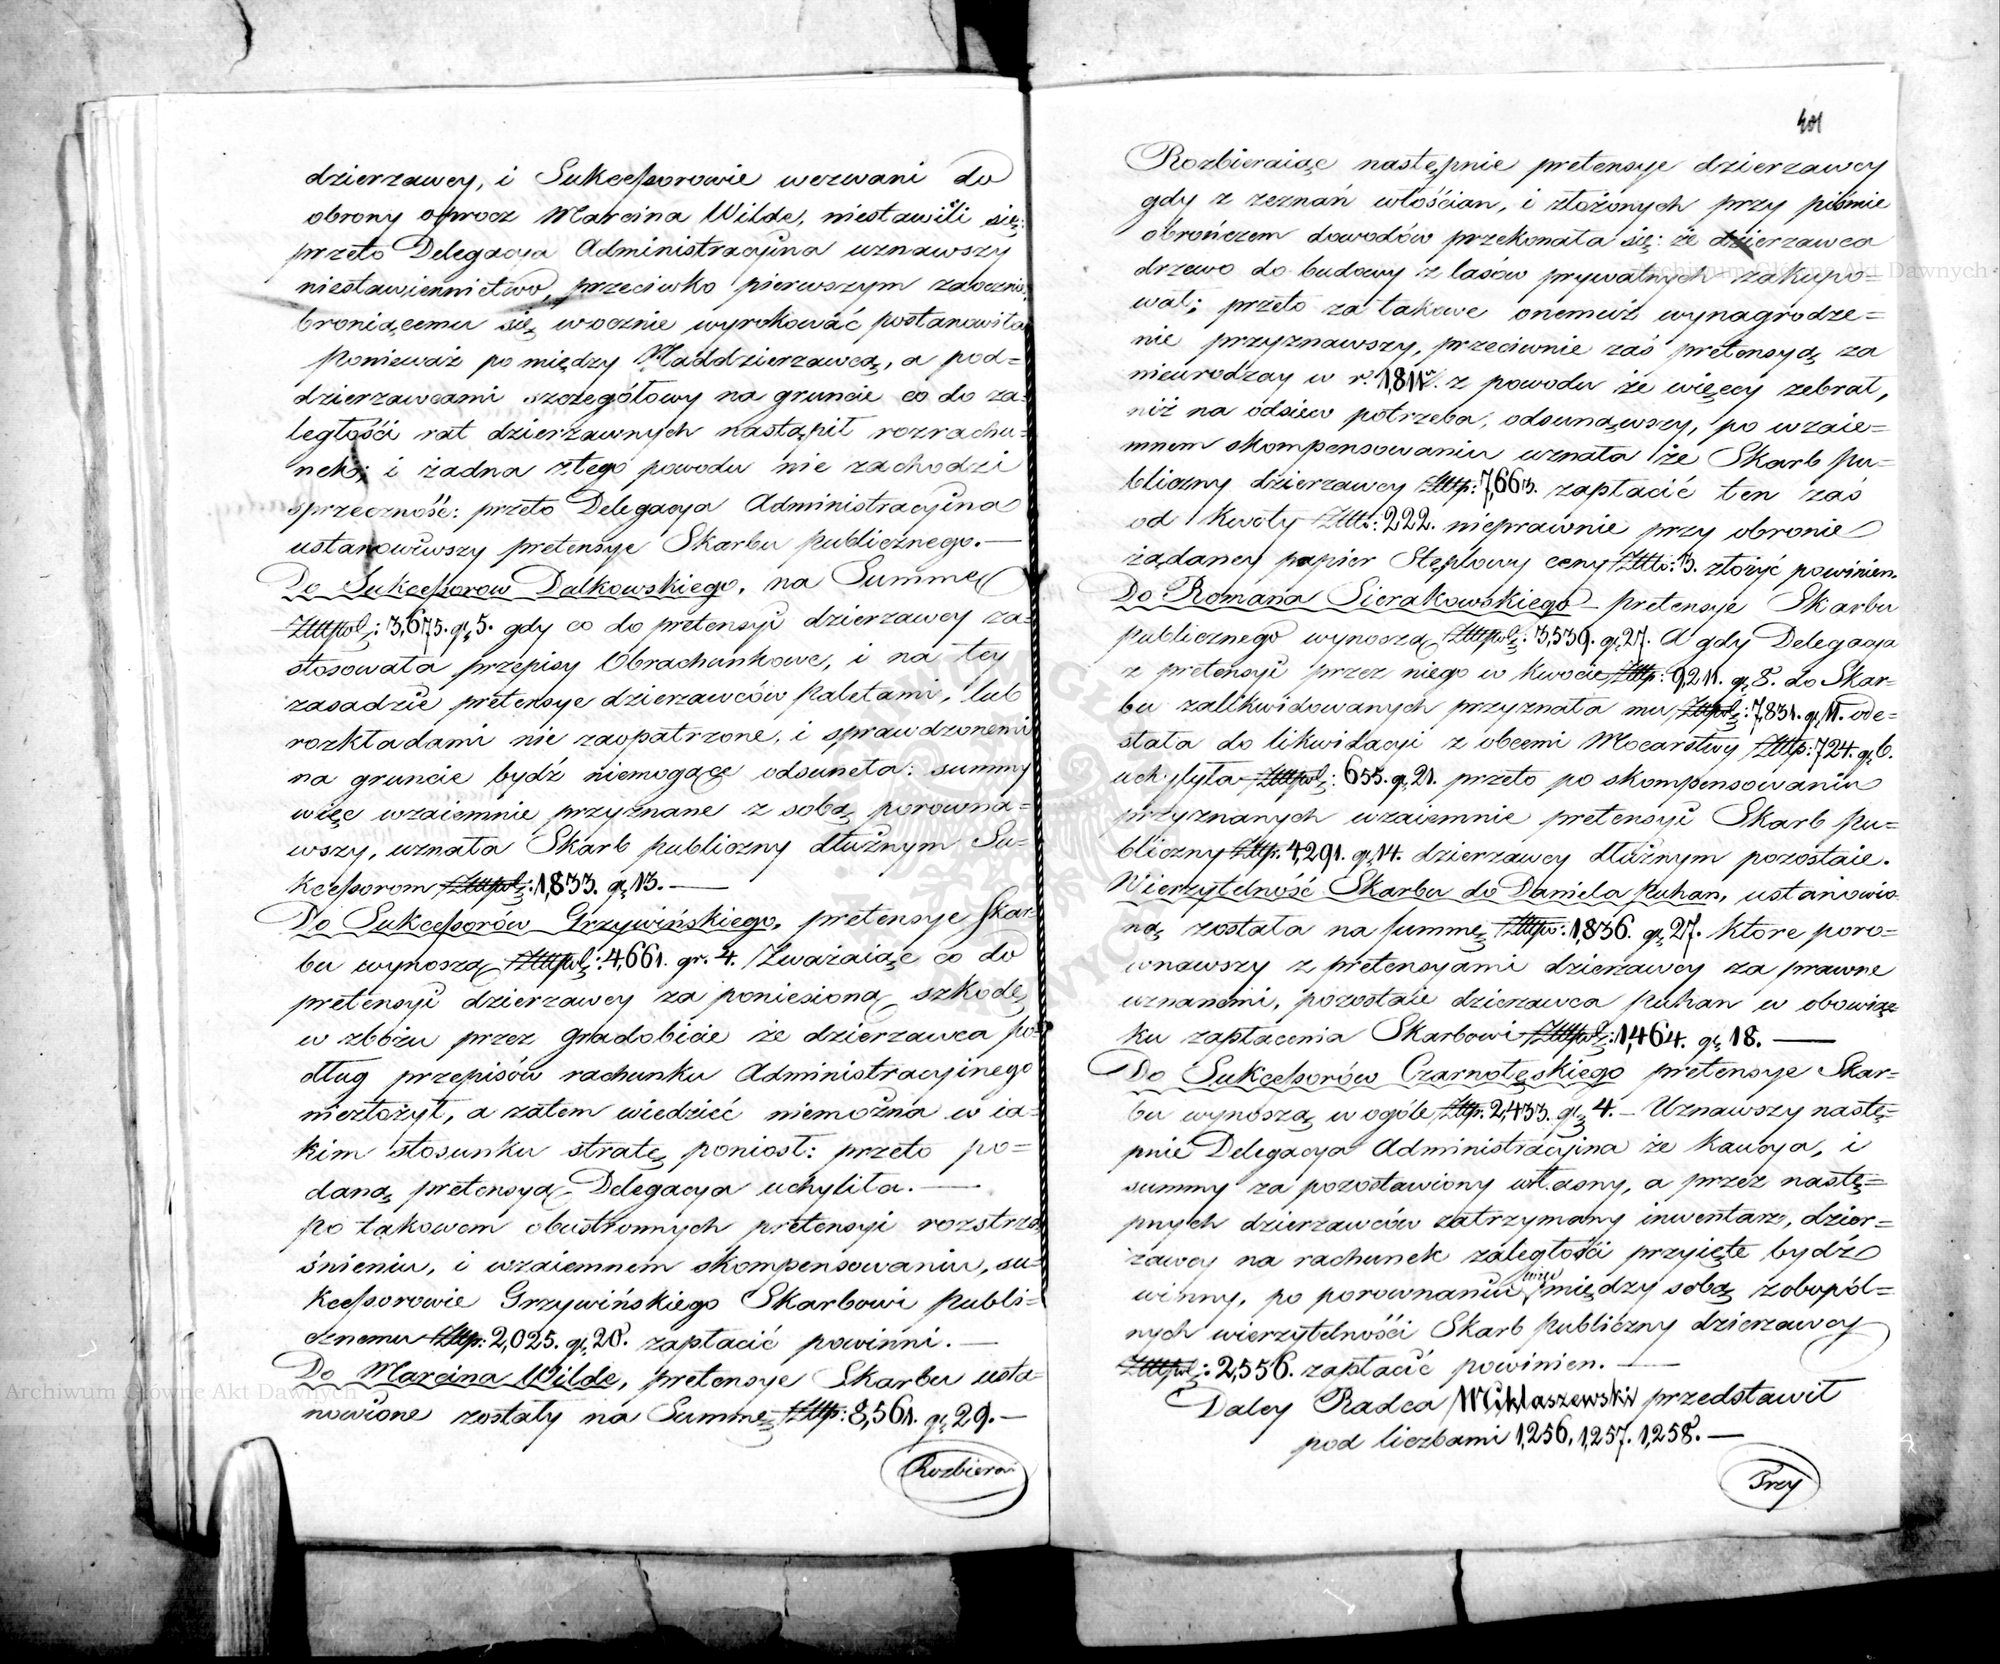 dzierzawcy, i Sukcessorowie wezwani do
obrony oprocz Marcina Wilde, niestawili się:
przeto Delegacya Administracyina uznawszy
niestawiennictwo, przeciwko pierwszym zaocznie
broniącemu się wocznie wyrokować postanowiła
Ponieważ pomiędzy Naddzierzawcą, a pod=
dzierzawcami szczegółowy na gruncie co do za=
ległości rat dzierzawnych nastąpił rozrachu=
nek; i żadna z tego powodu nie zachodzi
sprzeczność: przeto Delegacya Administracyina
ustanowiwszy pretensye Skarbu publicznego.—
Do Sukcessorow Dalkowskiego, na Summę
Złtpol: 3,675. gr, 5. gdy co do pretensyi dzierzawcy za=
stosowała przepisy Obrachunkowe, i na tey
zasadzie pretensye dzierzawców Paletami, lub
rozkładami nie zaopatrzone, i sprawdzonemi
na gruncie bydź niemogące odsuneła: summy
więc wzaiemnie przyznane z sobą porowna=
wszy, uznała Skarb publiczny dłużnym Su=
kcessorom Złtpol: 1,833. gr, 13.—
Do Sukcessorów Grzywińskiego, pretensye Skar=
bu wynoszą Złtpol: 4,661. gr. 4. Zważaiąc co do
pretensyi dzierzawcy za poniesioną szkodę
w zbożu przez gradobicie że dzierzawca po=
dług przepisów rachunku Administracyinego
niezłożył, a zatem wiedzieć niemożna w ia=
kim stosunku stratę poniosł: przeto po=
daną pretensyą Delegacya uchyliła.—
Po takowem obustronnych pretensyi rozstrzą
śnieniu, i wzaiemnem skompensowaniu, su=
kcessorowie Grzywińskiego Skarbowi Publi=
cznemu Złtp: 2,025. gr, 20. zapłacić powinni.—
Do Marcina Wilde, pretensye Skarbu usta=
nowione zostały na Summę Złtp: 8,561. gr, 29.—
Rozbierai
401
Rozbieraiąc następnie pretensye dzierzawcy
gdy z zeznań włościan, i złożonych przy piśmie
obrończem dowodów przekonała się: że dzierzawca
drzewo do budowy z lasów prywatnych zakupo=
wał; przeto za takowe onemuż wynagrodze=
nie przyznawszy, przeciwnie zaś pretensyą za
nieurodzay w r. 1811. z powodu że więcey zebrał,
niż na odsiew potrzeba, odsunąwszy, po wzaie=
mnem skompensowaniu uznała że Skarb Pu=
bliczny dzierzawcy Złtp: 7,663. zapłacić ten zaś
od kwoty Złtt: 222. nieprawnie przy obronie
żądaney papier Stęplowy ceny Złtt: 3. złożyć powinien.
Do Romana Sierakowskiego pretensye Skarbu
publicznego wynoszą Złtpol: 3,539. gr, 27. A gdy Delegacya
z pretensyi przez niego w kwocie Złtp: 9,211. gr, 8. do Skar=
bu zalikwidowanych przyznała mu Złtpol: 7,831. gr, 11. ode=
słała do likwidacyi z obcemi Mocarstwy Złtp: 724. gr, 6.
uchyliła Złtpol: 655. gr, 21. przeto po skompensowaniu
przyznanych wzaiemnie pretensyi Skarb Pu=
bliczny Złtp. 4,291. gr, 14. dzierzawcy dłużnym pozostaie.
Wierzytelność Skarbu do Daniela Puhan, ustanowio=
ną została na summę Złtpo: 1,836. gr, 27. które poro=
wnawszy z pretensyami dzierzawcy za prawne
uznanemi, pozostaie dzierzawca Puhan w obowiąz=
ku zapłacenia Skarbowi Złtpol: 1,464. gr, 18.—
Do Sukcessorów Czarnołęskiego pretensye Skar=
bu wynoszą w ogóle Złtp. 2,433. gr, 4.— Uznawszy nastę=
pnie Delegacya Administracyina że kaucya, i
summy za pozostawiony własny, a przez nastę=
pnych dzierzawców zatrzymany inwentarz, dzier=
zawcy na rachunek zaległości przyięte bydź
winny, po porownaniu więc między sobą zobopól=
nych wierzytelności Skarb Publiczny dzierzawcy
Złtpol: 2,556. zapłacić powinien.—
Daley Radca Miklaszewski przedstawił
pod liczbami 1,256, 1,257. 1,258.—
Trzy
Archiwum Główne Akt Dawnych
Archiwum Główne Akt Dawnych